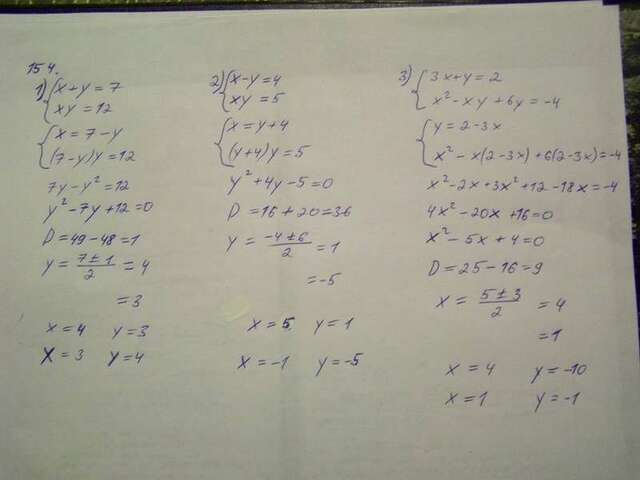 154.
1) { x + y = 7
xy = 12
{ x = 7 - y
(7-y)y = 12
7y - y² = 12
y² - 7y + 12 = 0
D = 49 - 48 = 1
y = (7 ± 1)/2 = 4
= 3
x = 4 y = 3
x = 3 y = 4
2) { x - y = 4
xy = 5
{ x = y + 4
(y+4)y = 5
y² + 4y - 5 = 0
D = 16 + 20 = 36
y = (-4 ± 6)/2 = 1
= -5
x = 5 y = 1
x = -1 y = -5
3) { 3x + y = 2
x² - xy + 6y = -4
{ y = 2 - 3x
x² - x(2-3x) + 6(2-3x) = -4
x² - 2x + 3x² + 12 - 18x = -4
4x² - 20x + 16 = 0
x² - 5x + 4 = 0
D = 25 - 16 = 9
x = (5 ± 3)/2 = 4
= 1
x = 4 y = -10
x = 1 y = -1